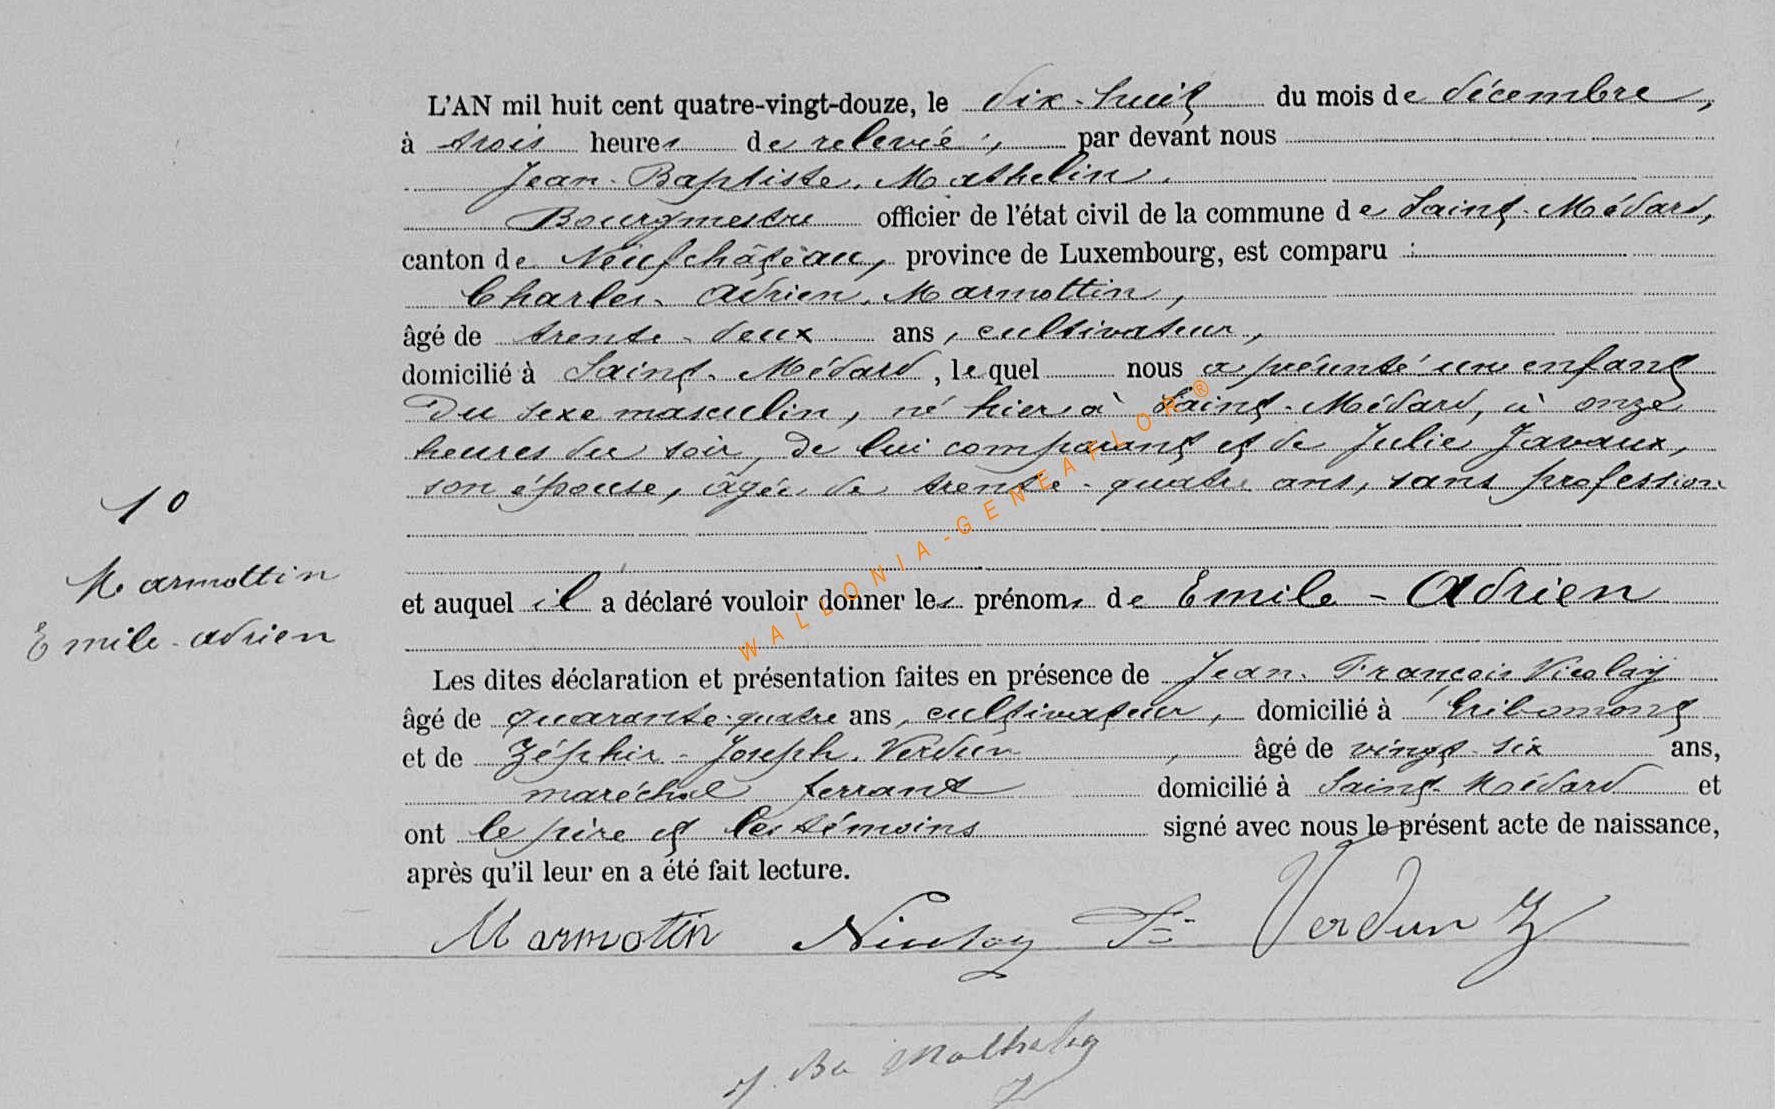 L'AN mil huit cent quatre-vingt-douze, le dix-huit du mois de décembre,
à trois heures de relevée, par devant nous
Jean-Baptiste Mathelin.
Bourgmestre officier de l'état civil de la commune de Saint-Médard,
canton de Neufchâteau, province de Luxembourg, est comparu :
Charles-Adrien Marmottin,
âgé de trente-deux ans, cultivateur,
domicilié à Saint-Médard, lequel nous a présenté un enfant
du sexe masculin, né hier à Saint-Médard, à onze
heures du soir, de lui comparant et de Julie Javaux,
son épouse, âgée de trente-quatre ans, sans profession
10
Marmottin
Emile-Adrien
et auquel il a déclaré vouloir donner les prénoms de Emile-Adrien
Les dites déclaration et présentation faites en présence de Jean-François Nicolay
âgé de quarante-quatre ans, cultivateur, domicilié à Gribomont
et de Zéphir-Joseph Verdun, âgé de vingt-six ans,
maréchal ferrant domicilié à Saint-Médard et
ont le père et les témoins signé avec nous le présent acte de naissance,
après qu'il leur en a été fait lecture.
Marmottin Nicolay Verdun Z
J. Bte Mathelin
WALLONIA-GENEAFLOR®